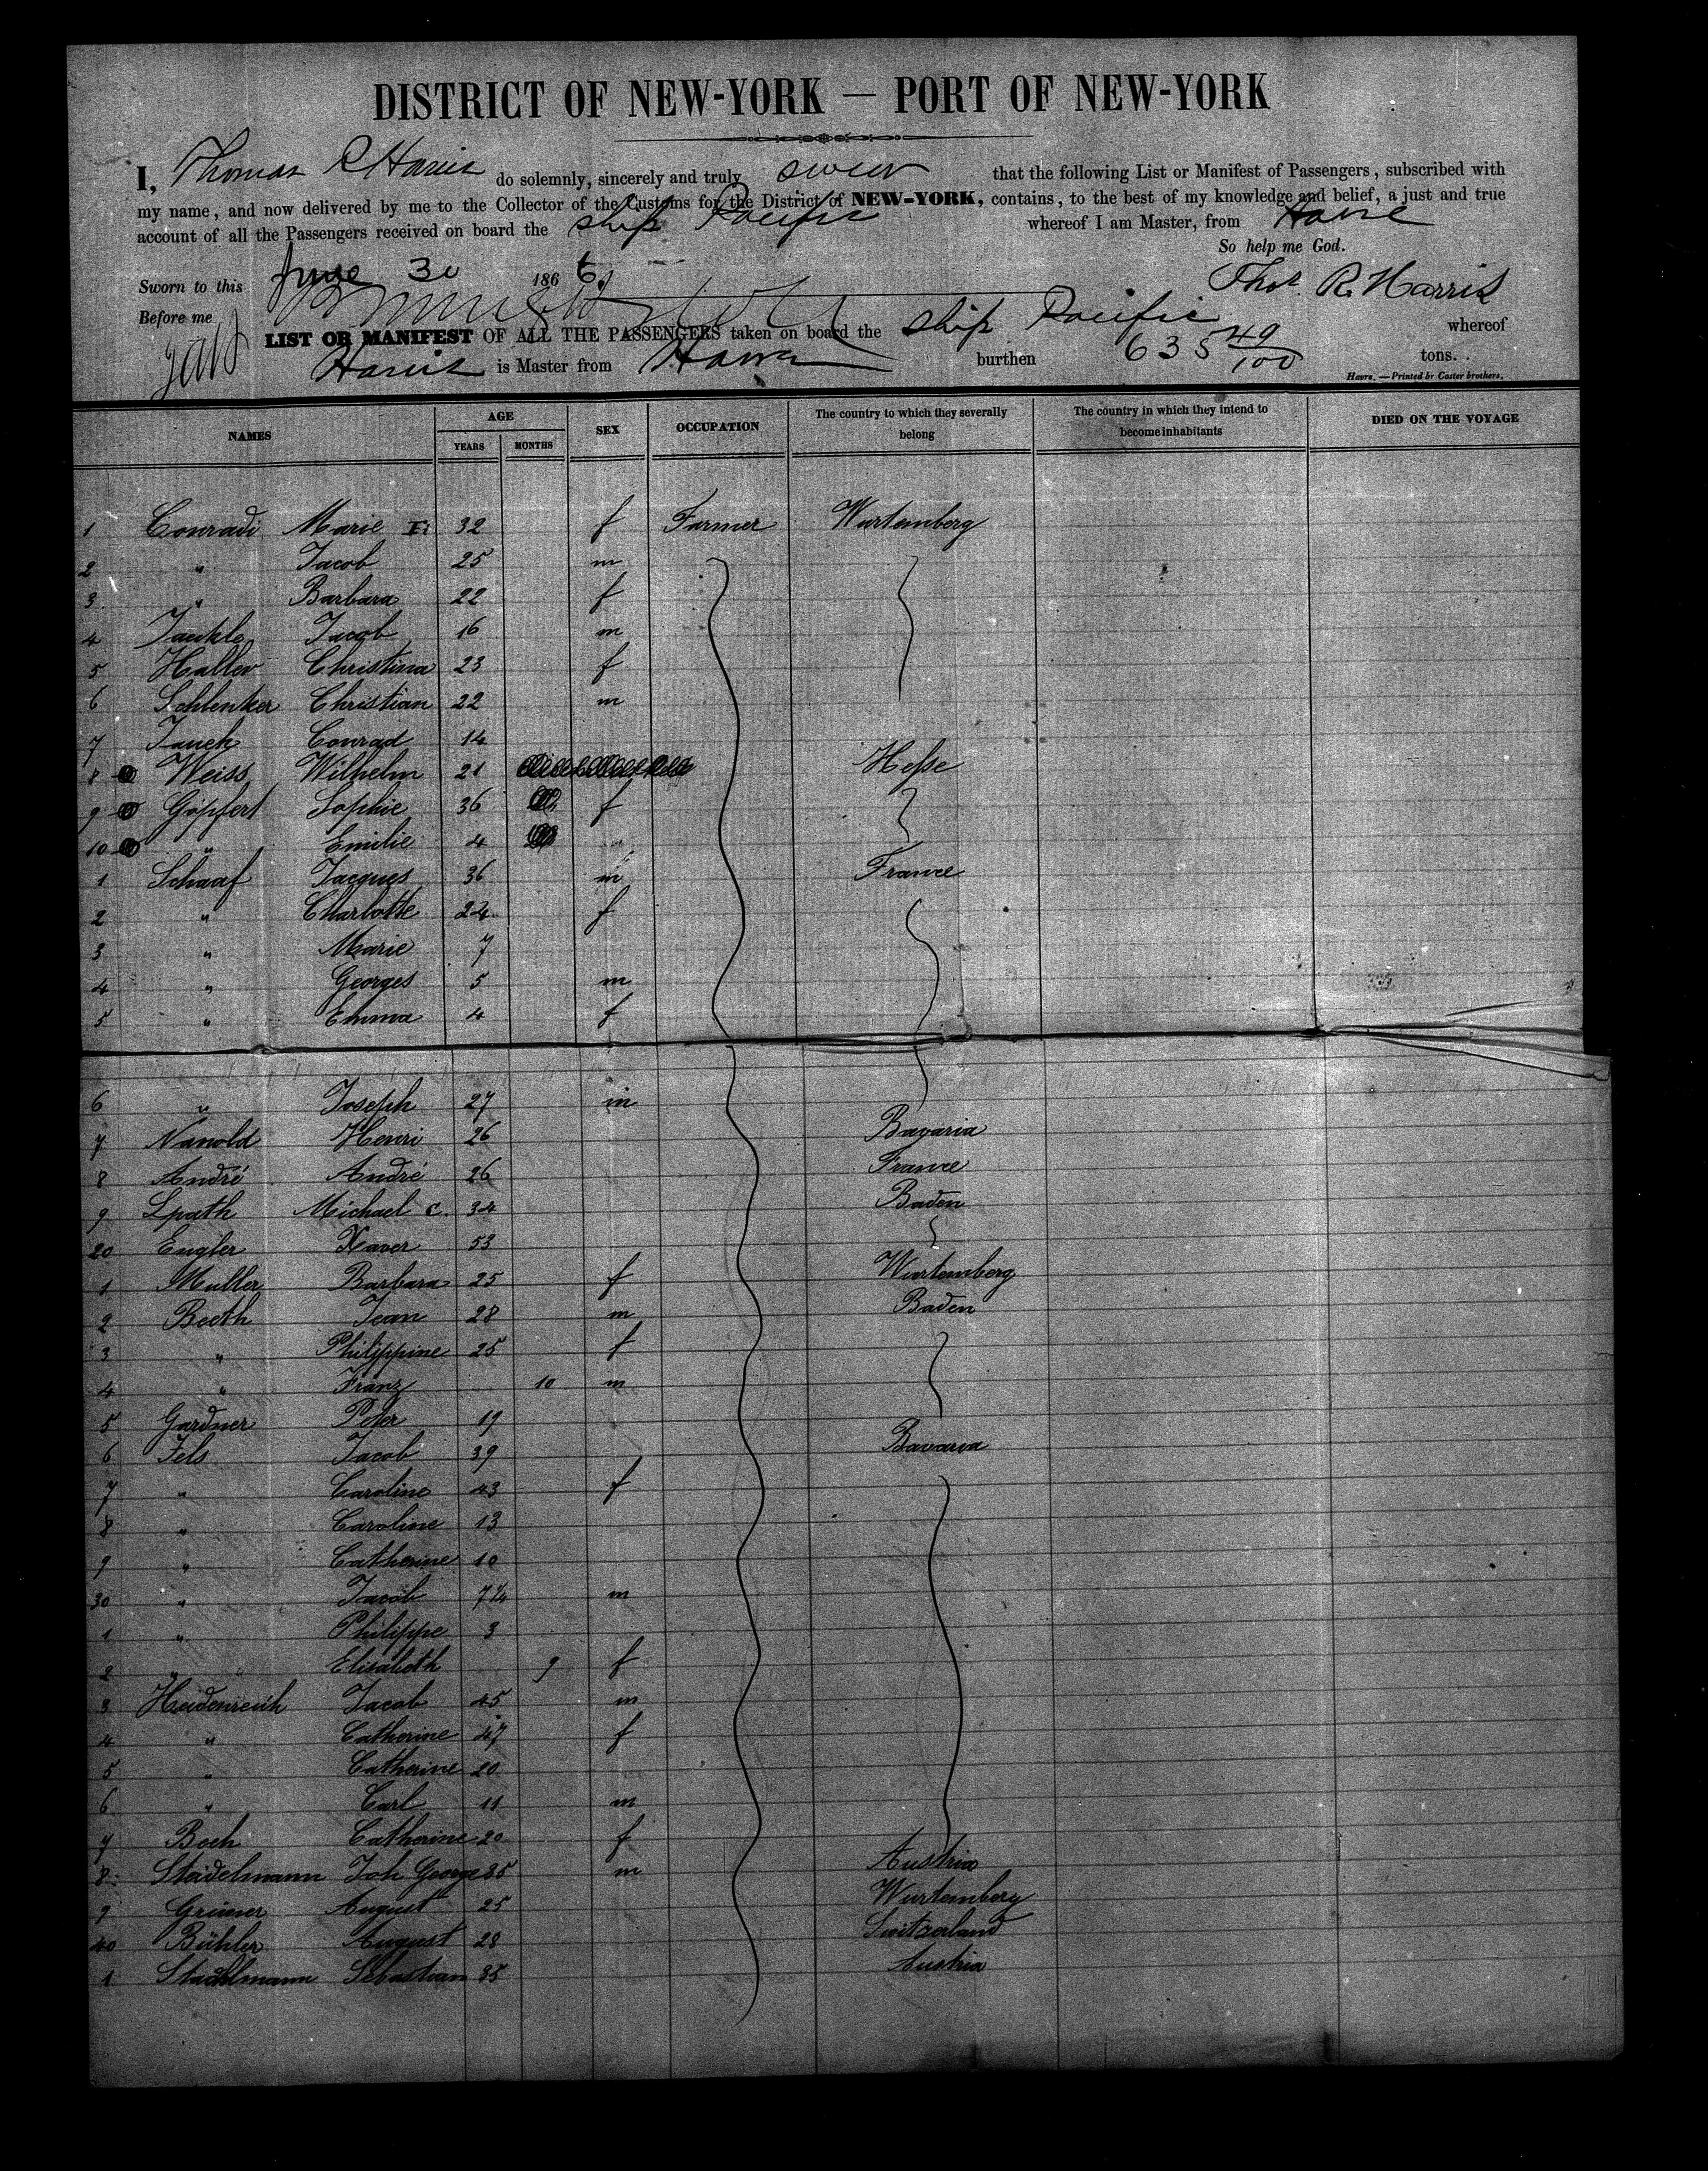 DISTRICT OF NEW-YORK — PORT OF NEW-YORK
I, Thomas R Harris do solemnly, sincerely and truly swear that the following List or Manifest of Passengers, subscribed with
my name, and now delivered by me to the Collector of the Customs for the District of NEW-YORK, contains, to the best of my knowledge and belief, a just and true
account of all the Passengers received on board the ship Pacific whereof I am Master, from Havre
So help me God.
Sworn to this June 30 1866 Thos. R. Harris
Before me
LIST OR MANIFEST OF ALL THE PASSENGERS taken on board the ship Pacific whereof
Harris is Master from Havre burthen 635 49/100 tons.
Havre. — Printed by Coster brothers.
NAMES AGE SEX OCCUPATION The country to which they severally belong The country in which they intend to become inhabitants DIED ON THE VOYAGE
YEARS MONTHS
1 Conradi Marie 32 f Farmer Wurtemberg
2 " Jacob 25 m
3 " Barbara 22 f
4 Jacob 16 m
5 Haller Christina 23 f
6 Schlenker Christian 22 m
7 Jauch Conrad 14
8 Weiss Wilhelm 21 Hesse
9 Göpfert Sophie 36 f
10 " Emilie 4
1 Schaaf Jacques 36 m France
2 " Charlotte 24 f
3 " Marie 7
4 " Georges 5 m
5 " Emma 4 f
6 " Joseph 27 m
7 Nanold Henri 26 Bavaria
8 André André 26 France
9 Spath Michael c. 34 Baden
20 Engler Xaver 53
1 Muller Barbara 25 f Wurtemberg
2 Beeth Jean 28 m Baden
3 " Philippine 25 f
4 " Franz 10 m
5 Gardner Peter 19
6 Fels Jacob 39 Bavaria
7 " Caroline 43 f
8 " Caroline 13
9 " Catherine 10
30 " Jacob 7 1/2 m
1 " Philippe 3
2 " Elisabeth 9 f
3 Heidenreich Jacob 45 m
4 " Catherine 47 f
5 " Catherine 20
6 " Carl 11 m
7 Boch Catherine 20 f
8 Stadelmann Joh George 35 m Austria
9 Grüner August 25 Wurtemberg
40 Bühler August 28 Switzerland
1 Stadelmann Sebastian 35 Austria